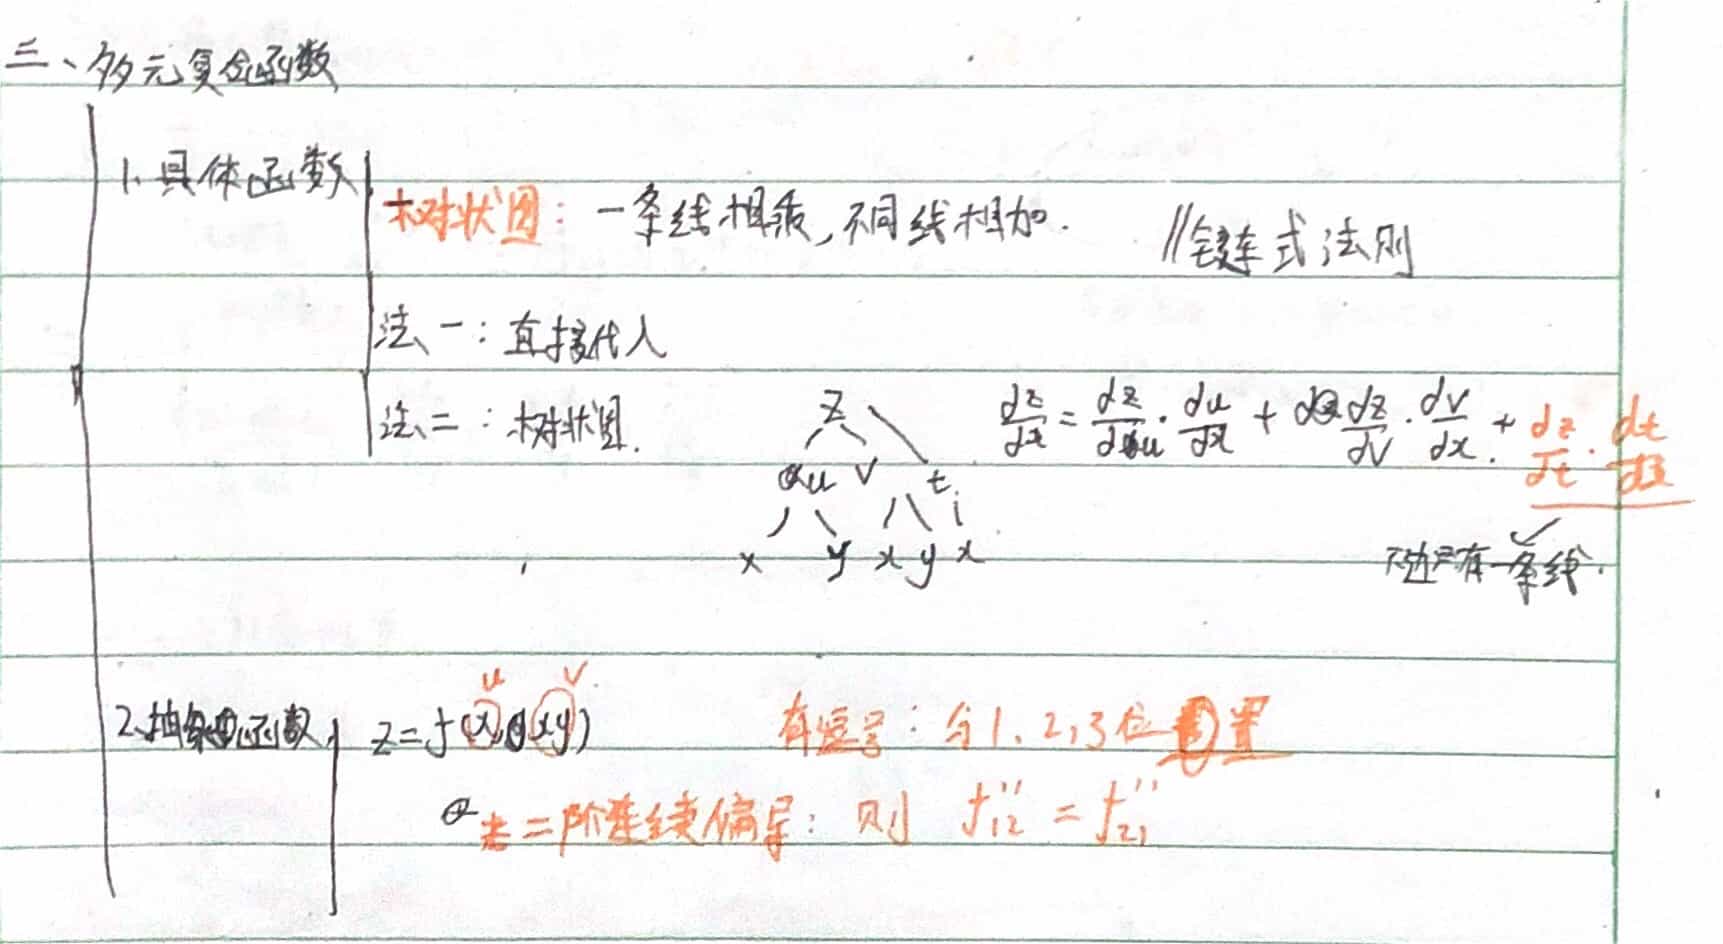 二、多元复合函数
1.具体函数
树状图：一条线相乘,不同线相加.
//链式法则
法一：直接代入
法二：树状图.
z
u v t
x y x y x
dz/dx = dz/du · du/dx + dz/dv · dv/dx + dz/dt · dt/dx
下边只有一条线.
u v
2.抽象函数 z=f(x,xy)
有逗号：分1、2,3位置
二阶连续偏导：则 f''₁₂ = f''₂₁